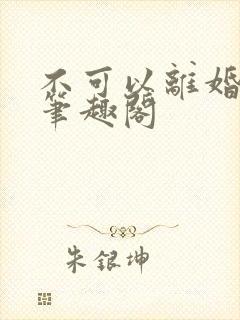 不可以離婚
筆趣閣
朱銀坤